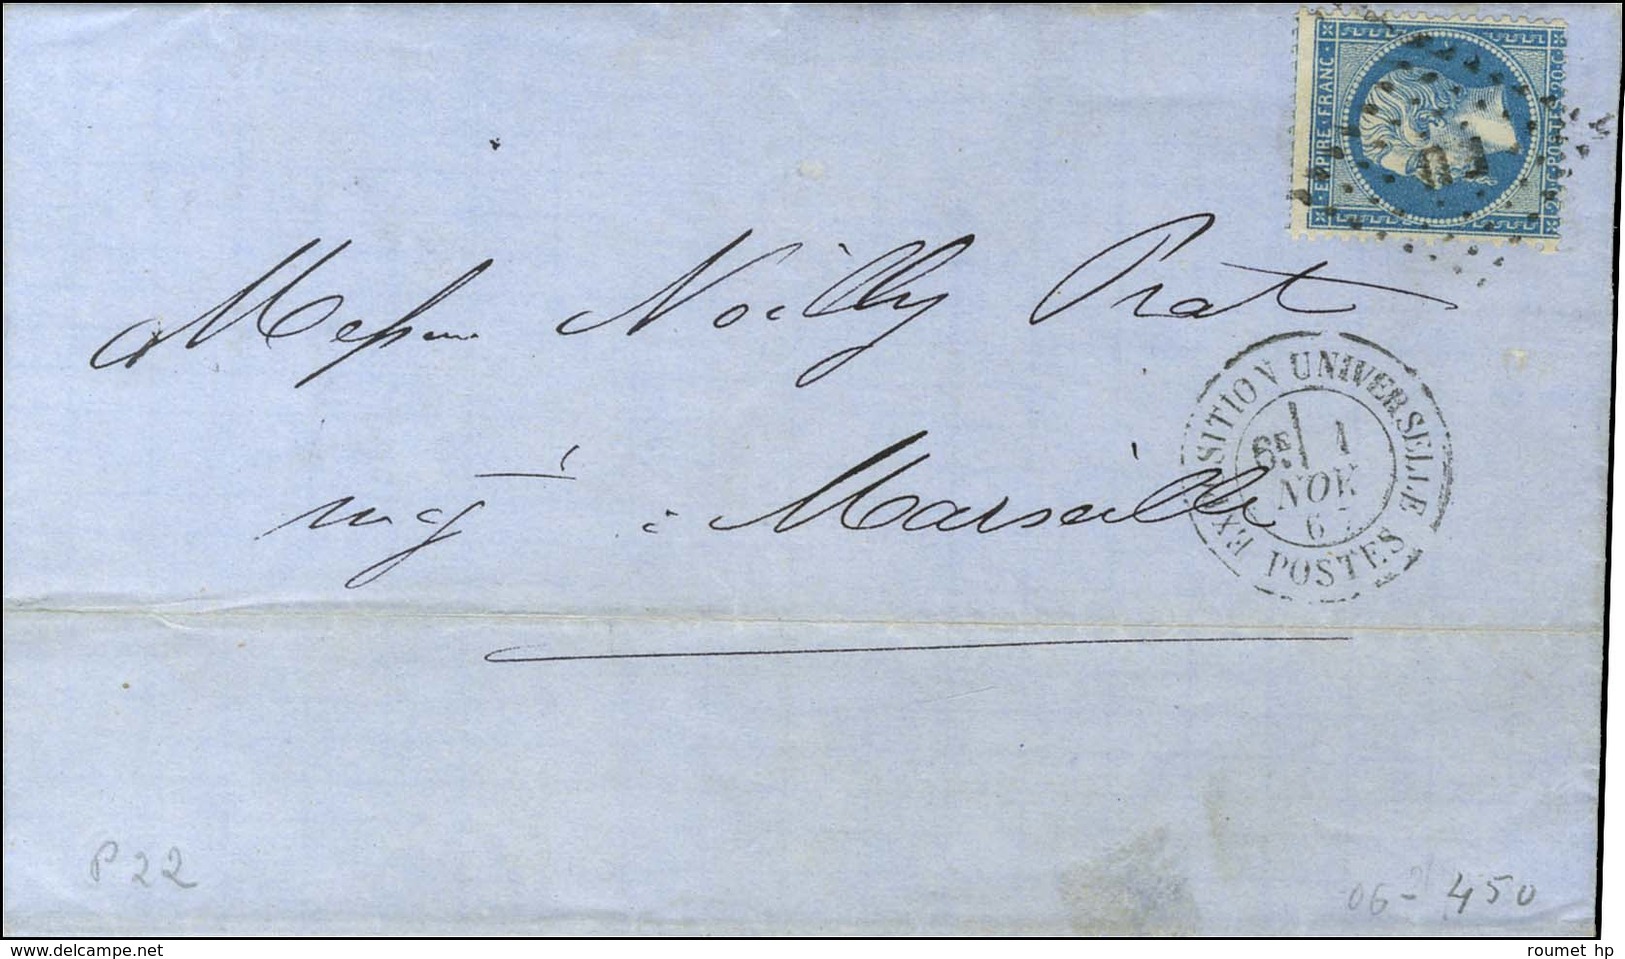 EMPIRE · FRANC ·
20 c POSTES 20 c
Messieurs Noilly Prat
EXPOSITION UNIVERSELLE
6E 1
NOV
67
POSTES
nég.t à Marseille
P 22
06 - 450
www.delcampe.net
roumet hp